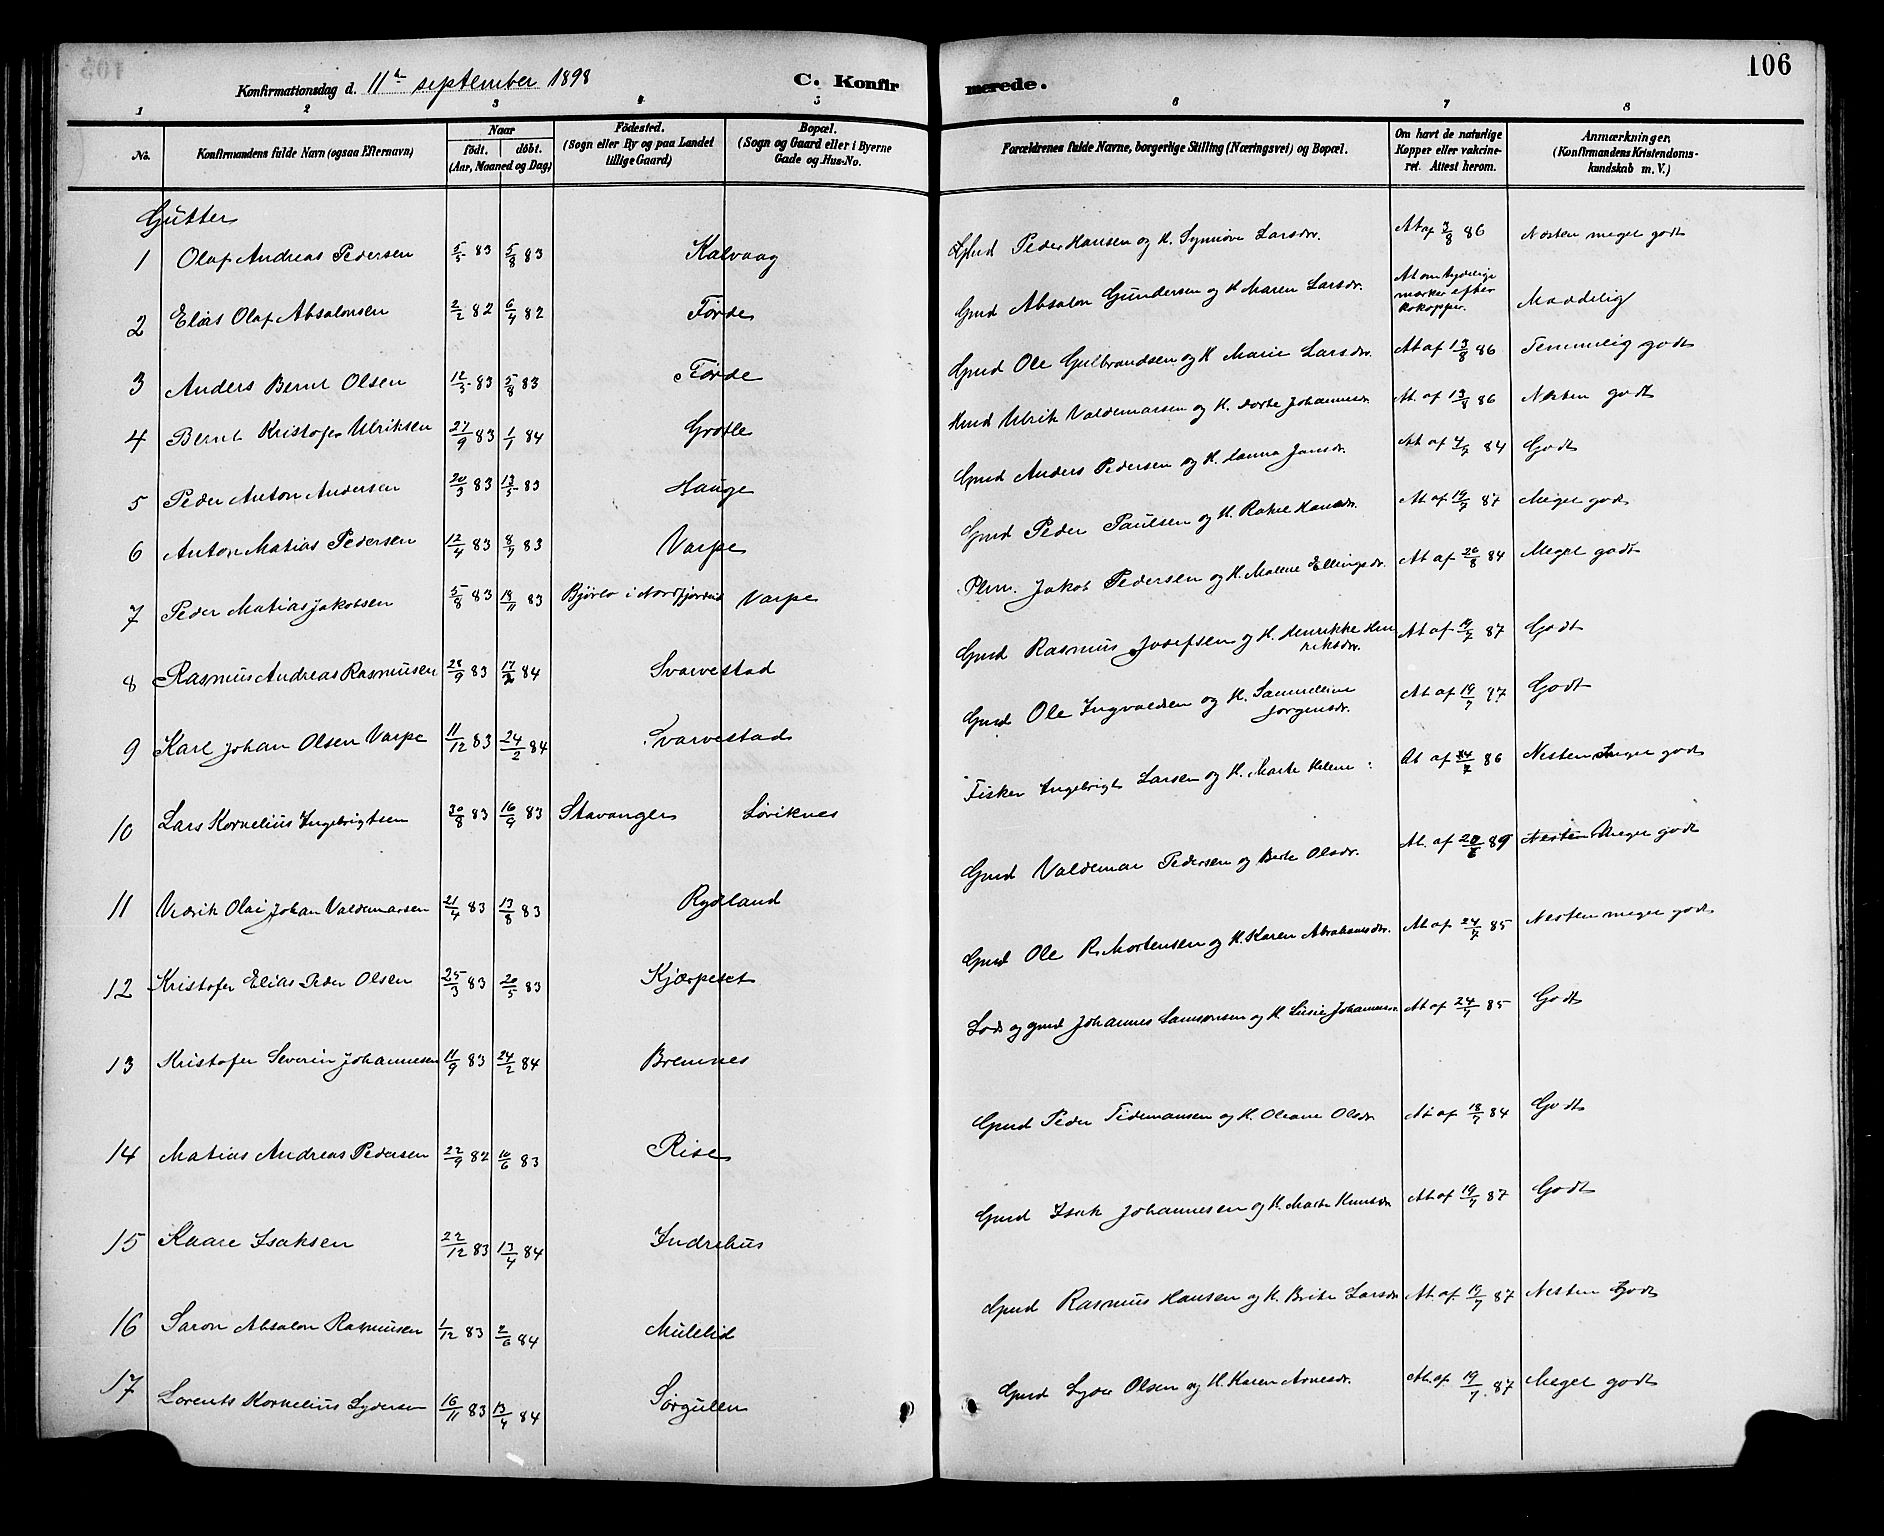 106
Konfirmationsdag d. 11te september 1898 C. Konfirmerede.
1 2 3 4 5 6 7 8
No. Konfirmandens fulde Navn (ogsaa Efternavn) Naar födt. döbt. (Aar, Maaned og Dag) Födested. (Sogn eller By og paa Landet tillige Gaard) Bopæl. (Sogn og Gaard eller i Byerne Gade og Hus-No. Forældrenes fulde Navne, borgerlige Stilling (Næringsvei) og Bopæl. Om havt de naturlige Kopper eller vakcineret. Attest herom. Anmærkninger, (Konfirmandens Kristendomskundskab m. V.)
Gutter
1 Olaf Andreas Pedersen 5/5 83 5/8 83 Kalvaag Gmd Peder Hansen og H. Synnöve Larsdr. At af 3/8 86 Nesten meget godt
2 Elias Olaf Absalonsen 2/2 82 6/4 82 Förde Gmd Absalon Gundersen og H Maren Larsdr. At om tydelige merker efter kokopper. Maadelig
3 Anders Bernt Olsen 12/5 83 5/8 83 Förde Gmd Ole Gulbrandsen og H Marie Larsdr. At af 13/8 86 Temmelig godt
4 Bernt Kristofer Ulriksen 27/9 83 1/1 84 Grotle Hmd Ulrik Valdemarsen og H. Dorte Johannesdr At. af 13/8 86 Nesten godt
5 Peder Anton Andersen 20/3 83 13/5 83 Hauge Gmd Anders Pedersen og H. Hanna Jansdr. At af 4/7 84 Godt
6 Anton Matias Pedersen 12/4 83 8/7 83 Varpe Gmd Peder Paulsen og H. Rakel Hansdr. At af 19/7 87 Meget godt
7 Peder Matias Jakobsen 5/8 83 18/11 83 Bjørlo i Nordfjordeid Varpe Plm. Jakob Pedersen og H. Malene Ellingsdr. At af 20/8 84 Meget godt
8 Rasmus Andreas Rasmusen 28/9 83 17/2 84 Svarvestad Gmd Rasmus Josefsen og H. Henrikke Henriksdr. At af 19/7 87 Godt
9 Karl Johan Olsen Varpe 11/12 83 24/2 84 Svarvestad Gmd Ole Ingvaldsen og H. Samueline Jørgensdr. At af 19/7 87 Godt
10 Lars Kornelius Ingebrigtsen 30/8 83 16/9 83 Stavanger Løviknes Fisker Ingebrigt Larsen og H. Marte Helene At af 24/7 86 Nesten meget godt
11 Vedrik Olai Johan Valdemarsen 21/4 83 13/8 83 Rydland Gmd Valdemar Pedersen og Berte Olsdr. At. af 20/6 89 Nesten Meget godt
12 Kristofer Elias Peder Olsen 25/3 83 20/5 83 Kjærpeset Gmd Ole R. Mortensen og H. Karen Abrahamsdr. At af 24/7 85 Nesten meget godt
13 Kristofer Severin Johannesen 11/9 83 24/2 84 Bremnes Lods og gmd Johannes Samsonsen og H Lusie Johannesdr. At af 24/7 85 Godt
14 Matias Andreas Pedersen 22/9 82 10/6 83 Rise Gmd Peder Tidemansen og H. Oleane Olsdr At af 18/7 84 Godt
15 Kaare Isaksen 22/12 83 13/4 84 Indrehus Gmd Isak Johannesen og H. Marte Knutsdr At. af 19/7 87 Godt
16 Saron Absalon Rasmusen 1/12 83 2/6 84 Mulelid Gmd Rasmus Hansen og H. Brite Larsdr At. af 19/7 87 Nesten Godt
17 Lorents Kornelius Lydersen 16/11 83 13/4 84 Sørgulen Gmd Lyder Olsen og H. Karen Arnesdr. At. af 19/7 87 Meget godt